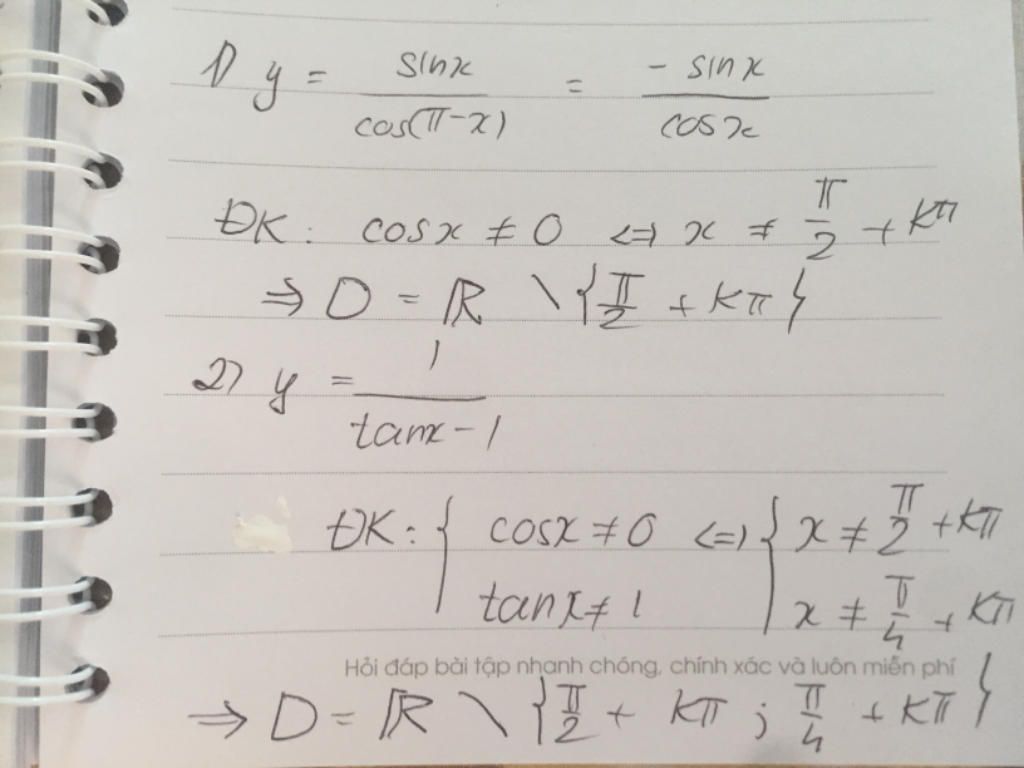 1) y = sinx / cos(π-x) = -sinx / cosx
ĐK: cosx ≠ 0 <=> x ≠ π/2 + kπ
⇒ D = ℝ \ {π/2 + kπ}
2) y = 1 / tanx - 1
ĐK: { cosx ≠ 0 <=> { x ≠ π/2 + kπ
tanx ≠ 1 x ≠ π/4 + kπ
Hỏi đáp bài tập nhanh chóng, chính xác và luôn miễn phí
⇒ D = ℝ \ {π/2 + kπ ; π/4 + kπ}